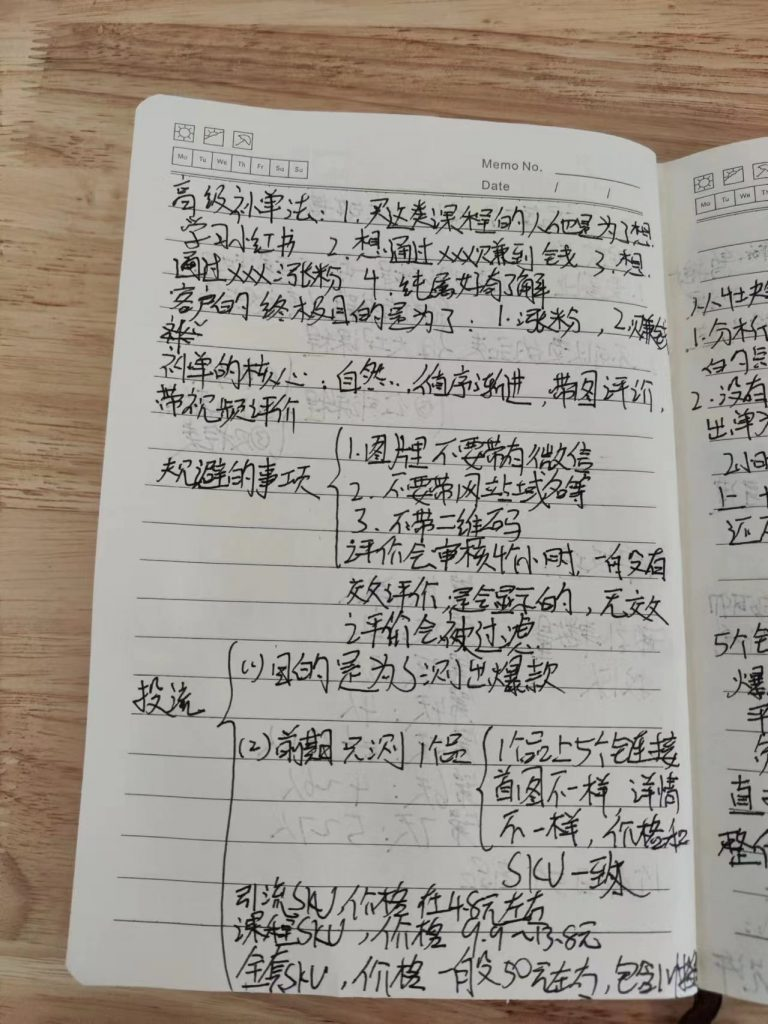 Mo Tu We Th Fr Sa Su
Memo No.
Date / /
高级补单法：1. 买这类课程的人他是为了想
学习小红书 2. 想通过xxx赚到钱 3. 想
通过xxx涨粉 4. 纯属好奇了解
客户的终极目的是为了：1. 涨粉，2. 赚钱
补单的核心：自然..，循序渐进，带图评价，
带视频评价
规避的事项
1. 图片里不要带有微信
2. 不要带网站域名等
3. 不带二维码
评价会审核4个小时，一般有
效评价，是会显示的，无效
评价会被过滤
投流
(1) 目的是为了测出爆款
(2) 前期只测1个品
1个品上5个链接
首图不一样 详情
不一样，价格和
SKU一致
引流SKU，价格在4.8元左右
课程SKU，价格 9.9~13.8元
全套SKU，价格一般50元左右，包含
Mo Tu We Th
1. 分析
2. 没有
出单
2小时
5个
爆
整个